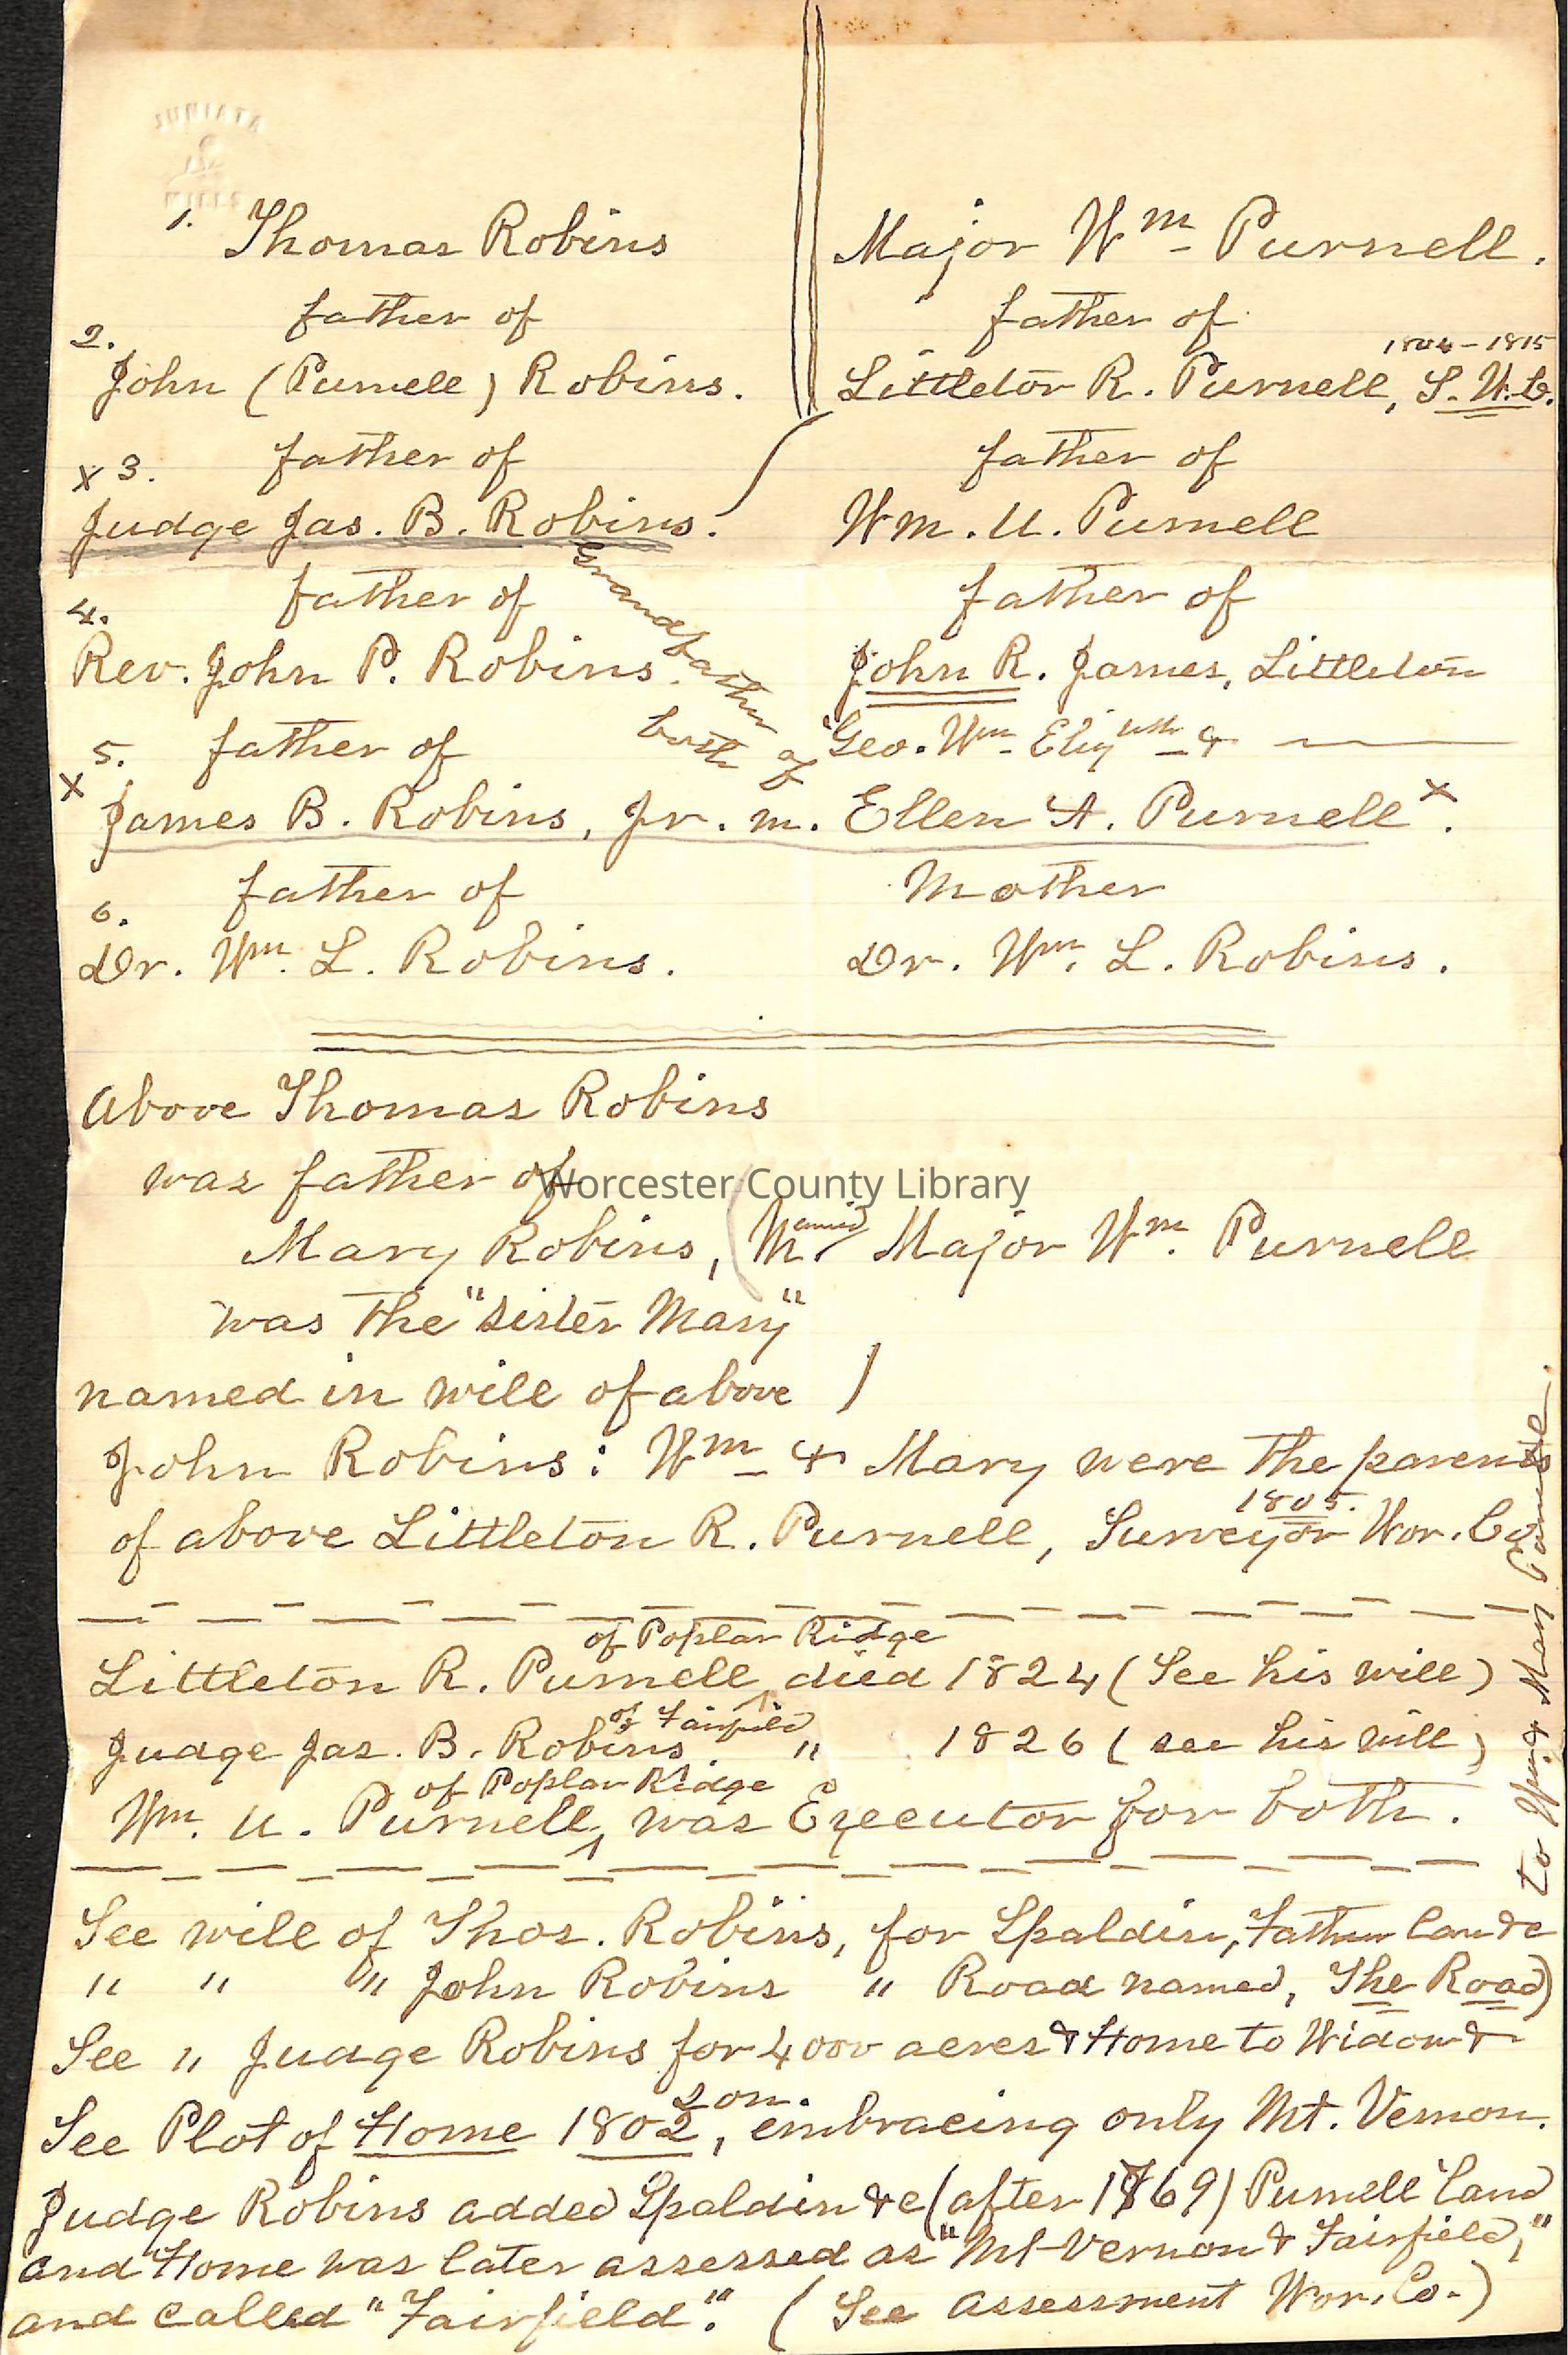 JUNIATA
MILLS
1. Thomas Robins
father of
2.
John (Purnell) Robins.
x 3. father of
Judge Jas. B. Robins.
father of
4.
Rev. John P. Robins.
5. father of
Grandfather
both of
Major Wm Purnell.
father of
1804-1815
Littleton R. Purnell, S. W. C.
father of
Wm. U. Purnell
father of
John R. James, Littleton
Geo. Wm Elizbth &
x James B. Robins, Jr. m. Ellen A. Purnell x.
father of Mother
6.
Dr. Wm. L. Robins. Dr. Wm. L. Robins.
Above Thomas Robins
was father of
Mary Robins, (Married) Major Wm. Purnell
was the "sister Mary"
named in will of above )
John Robins: Wm & Mary were the parents
1805.
of above Littleton R. Purnell, Surveyor Wor. Co.
of Poplar Ridge
Littleton R. Purnell, died 1824 (See his will)
of Fairfield
Judge Jas. B. Robins. " 1826 (see his will)
of Poplar Ridge
Wm. U. Purnell, was Executor for both.
See will of Thos. Robins, for Spaldin, Father land &c
" " " John Robins " Road named, The Road)
See " Judge Robins for 4000 acres & Home to Widow &
son.
See Plot of Home 1802, embracing only Mt. Vernon.
Judge Robins added Spaldin &c (after 1769) Purnell land
and Home was later assessed as "Mt-Vernon & Fairfield,"
and called "Fairfield". (See assessment Wor. Co.)
to Wm & Mary
Worcester County Library